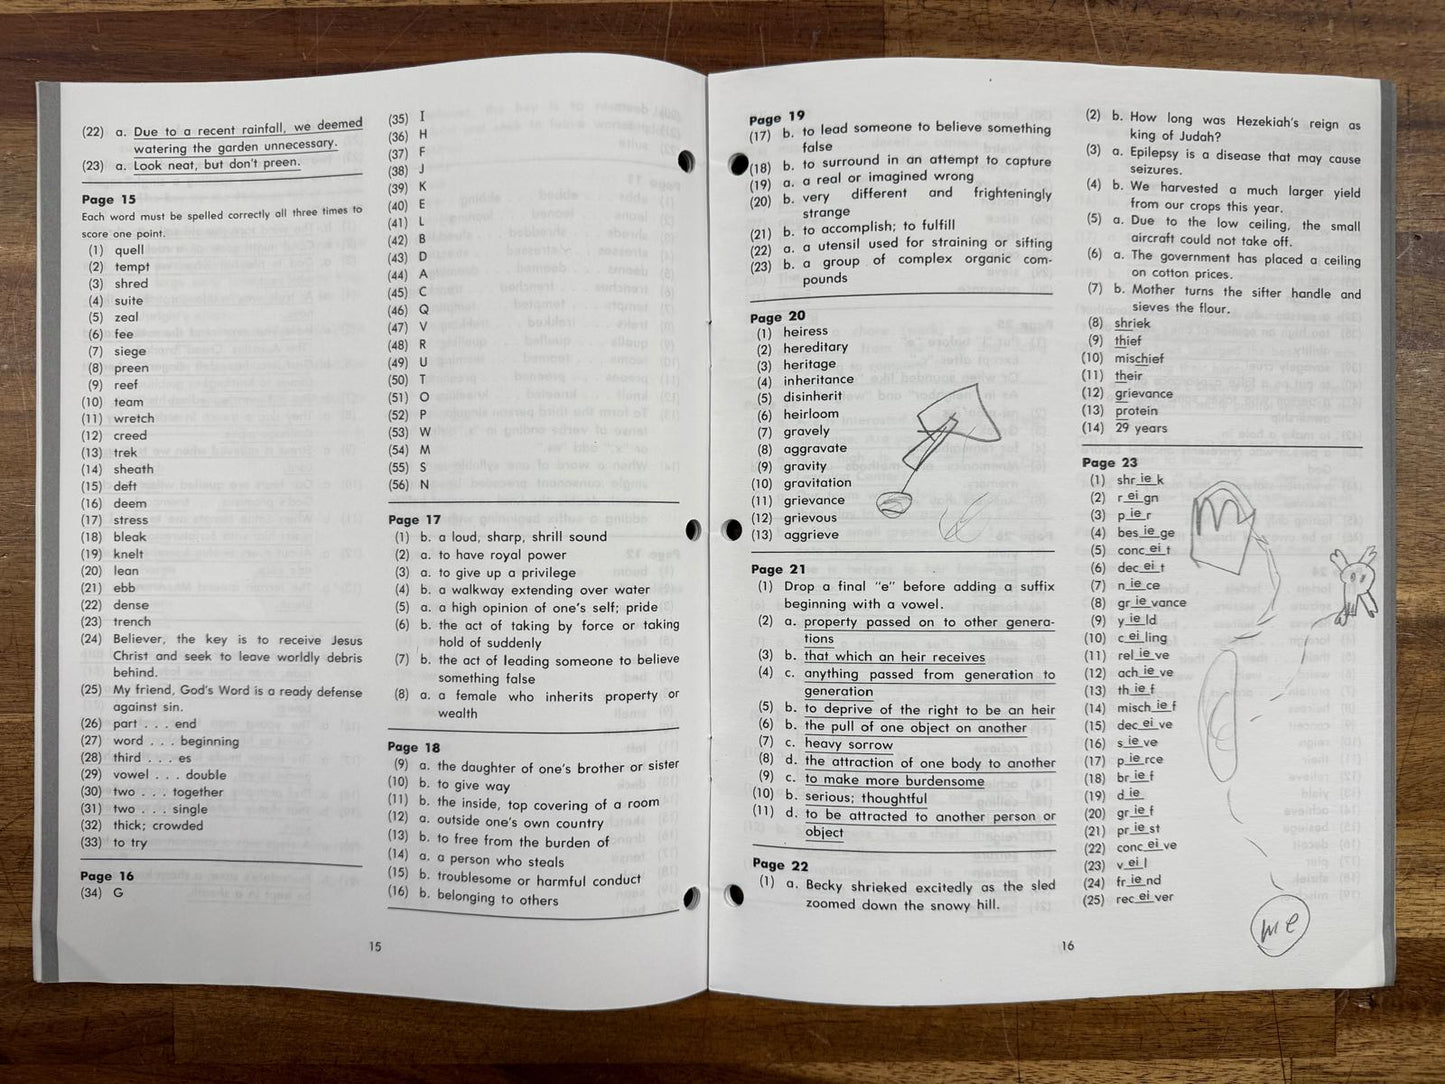 (22) a. Due to a recent rainfall, we deemed
watering the garden unnecessary.
(23) a. Look neat, but don't preen.
Page 15
Each word must be spelled correctly all three times to
score one point.
(1) quell
(2) tempt
(3) shred
(4) suite
(5) zeal
(6) fee
(7) siege
(8) preen
(9) reef
(10) team
(11) wretch
(12) creed
(13) trek
(14) sheath
(15) deft
(16) deem
(17) stress
(18) bleak
(19) knelt
(20) lean
(21) ebb
(22) dense
(23) trench
(24) Believer, the key is to receive Jesus
Christ and seek to leave worldly debris
behind.
(25) My friend, God's Word is a ready defense
against sin.
(26) part . . . end
(27) word . . . beginning
(28) third . . . es
(29) vowel . . . double
(30) two . . . together
(31) two . . . single
(32) thick; crowded
(33) to try
Page 16
(34) G
(35) I
(36) H
(37) F
(38) J
(39) K
(40) E
(41) L
(42) B
(43) D
(44) A
(45) C
(46) Q
(47) V
(48) R
(49) U
(50) T
(51) O
(52) P
(53) W
(54) M
(55) S
(56) N
Page 17
(1) b. a loud, sharp, shrill sound
(2) a. to have royal power
(3) a. to give up a privilege
(4) b. a walkway extending over water
(5) a. a high opinion of one's self; pride
(6) b. the act of taking by force or taking
hold of suddenly
(7) b. the act of leading someone to believe
something false
(8) a. a female who inherits property or
wealth
Page 18
(9) a. the daughter of one's brother or sister
(10) b. to give way
(11) b. the inside, top covering of a room
(12) a. outside one's own country
(13) b. to free from the burden of
(14) a. a person who steals
(15) b. troublesome or harmful conduct
(16) b. belonging to others
15
Page 19
(17) b. to lead someone to believe something
false
(18) b. to surround in an attempt to capture
(19) a. a real or imagined wrong
(20) b. very different and frighteningly
strange
(21) b. to accomplish; to fulfill
(22) a. a utensil used for straining or sifting
(23) b. a group of complex organic com-
pounds
Page 20
(1) heiress
(2) hereditary
(3) heritage
(4) inheritance
(5) disinherit
(6) heirloom
(7) gravely
(8) aggravate
(9) gravity
(10) gravitation
(11) grievance
(12) grievous
(13) aggrieve
Page 21
(1) Drop a final "e" before adding a suffix
beginning with a vowel.
(2) a. property passed on to other genera-
tions
(3) b. that which an heir receives
(4) c. anything passed from generation to
generation
(5) b. to deprive of the right to be an heir
(6) b. the pull of one object on another
(7) c. heavy sorrow
(8) d. the attraction of one body to another
(9) c. to make more burdensome
(10) b. serious; thoughtful
(11) d. to be attracted to another person or
object
Page 22
(1) a. Becky shrieked excitedly as the sled
zoomed down the snowy hill.
(2) b. How long was Hezekiah's reign as
king of Judah?
(3) a. Epilepsy is a disease that may cause
seizures.
(4) b. We harvested a much larger yield
from our crops this year.
(5) a. Due to the low ceiling, the small
aircraft could not take off.
(6) a. The government has placed a ceiling
on cotton prices.
(7) b. Mother turns the sifter handle and
sieves the flour.
(8) shriek
(9) thief
(10) mischief
(11) their
(12) grievance
(13) protein
(14) 29 years
Page 23
(1) shr ie k
(2) r ei gn
(3) p ie r
(4) bes ie ge
(5) conc ei t
(6) dec ei t
(7) n ie ce
(8) gr ie vance
(9) y ie ld
(10) c ei ling
(11) rel ie ve
(12) ach ie ve
(13) th ie f
(14) misch ie f
(15) dec ei ve
(16) s ie ve
(17) p ie rce
(18) br ie f
(19) d ie
(20) gr ie f
(21) pr ie st
(22) conc ei ve
(23) v ei l
(24) fr ie nd
(25) rec ei ver
m
me
16